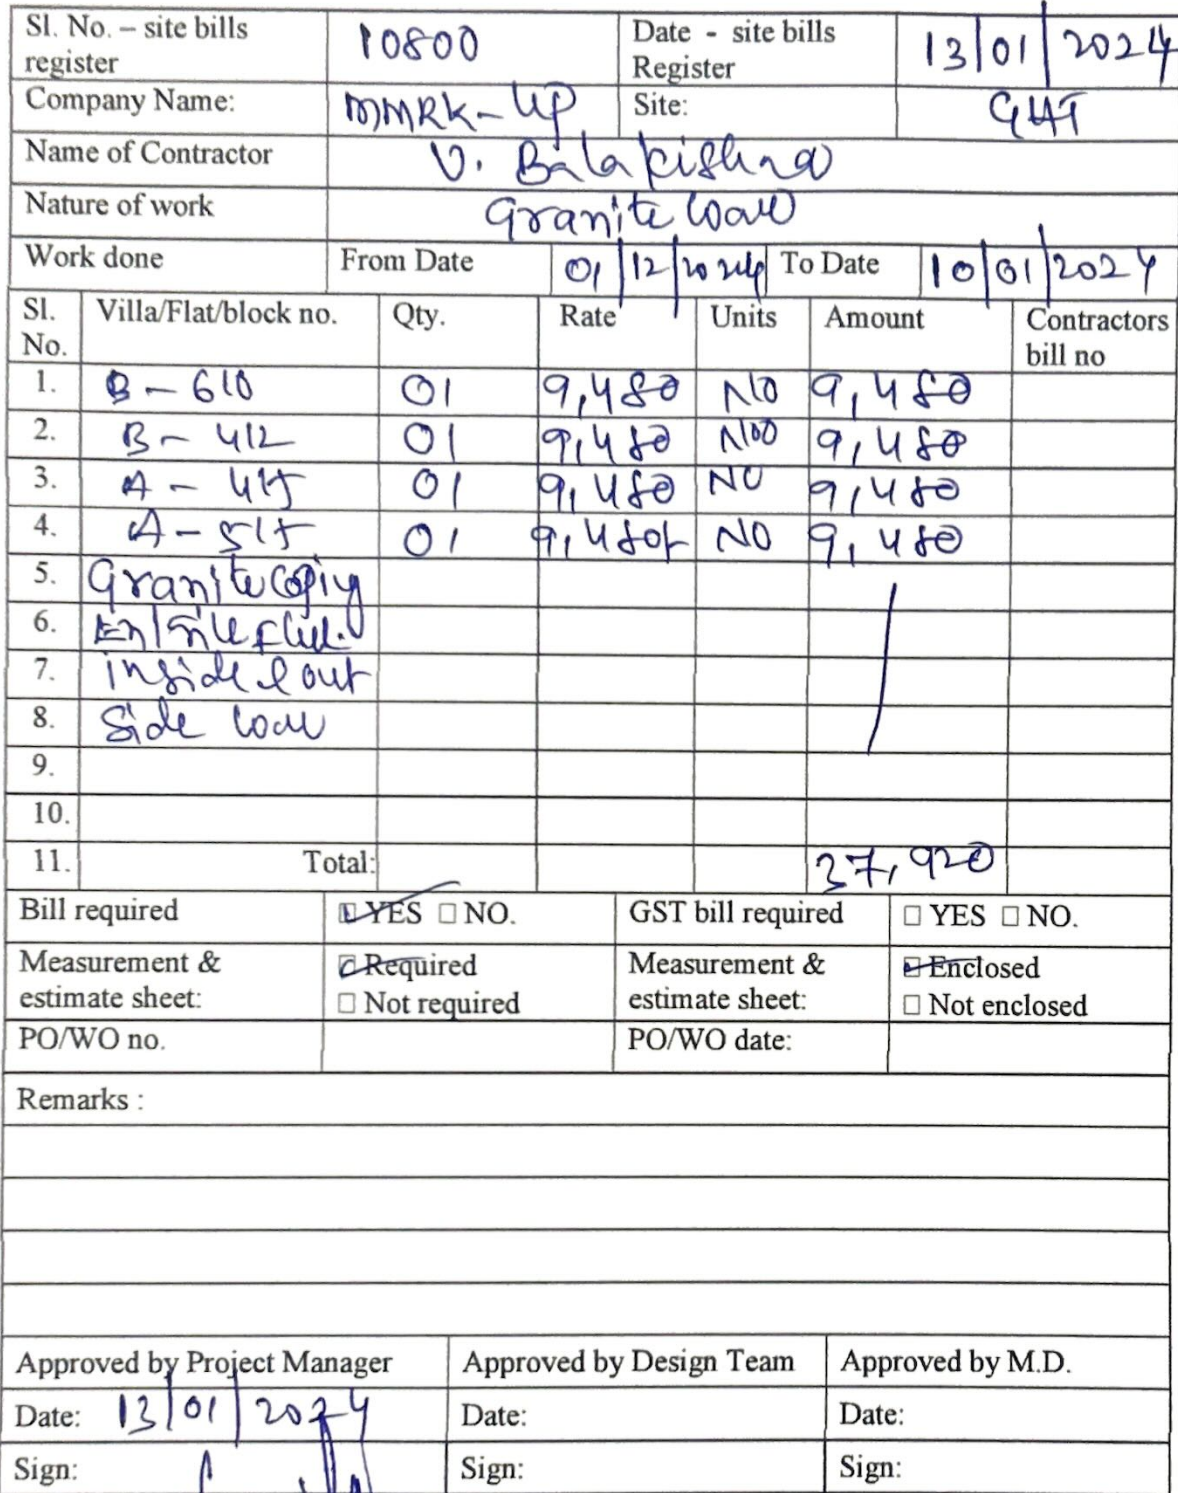 Sl. No. – site bills register 10800 Date - site bills Register 13/01/2024
Company Name: MMRK-UP Site: GHT
Name of Contractor V. Balakishna
Nature of work Granite work
Work done From Date 01/12/2024 To Date 10/01/2024
Sl. No. Villa/Flat/block no. Qty. Rate Units Amount Contractors bill no
1. B-610 01 9,480 NO 9,480
2. B-412 01 9,480 NO 9,480
3. A-415 01 9,480 NO 9,480
4. A-515 01 9,480/- NO 9,480
5. Granite
6.
7. inside & out
8. Side
9.
10.
11. Total: 37,920
Bill required YES NO. GST bill required YES NO.
Measurement & estimate sheet: Required Not required Measurement & estimate sheet: Enclosed Not enclosed
PO/WO no. PO/WO date:
Remarks :
Approved by Project Manager Approved by Design Team Approved by M.D.
Date: 13/01/2024 Date: Date:
Sign: Sign: Sign: